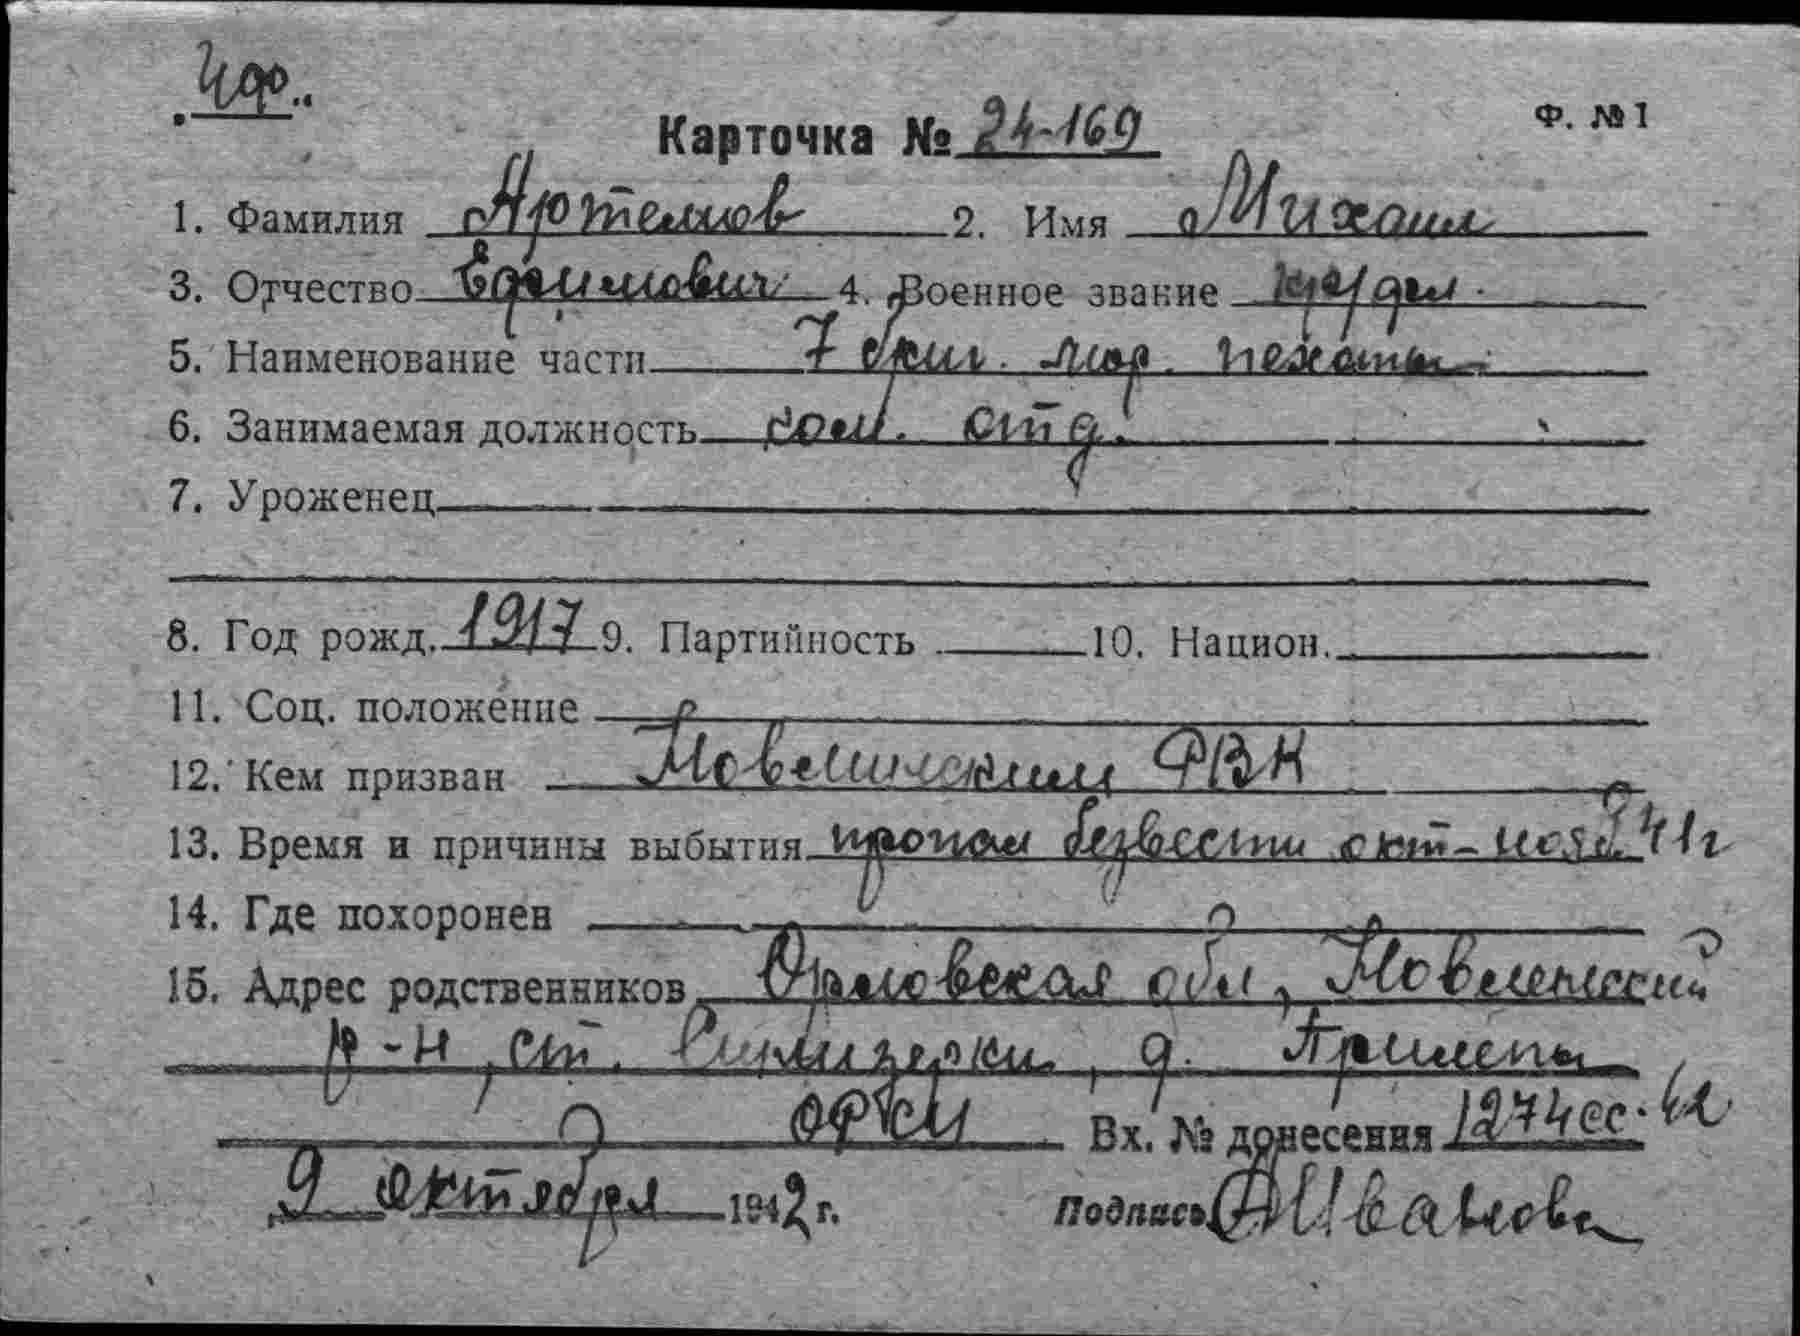 Ф. № 1
Карточка № 24-169
1. Фамилия Артемов 2. Имя Михаил
3. Отчество Ефимович 4. Военное звание
5. Наименование части 7 бриг. мор. пехоты
6. Занимаемая должность ком. отд.
7. Уроженец
8. Год рожд. 1917 9. Партийность 10. Национ.
11. Соц. положение
12. Кем призван РВК
13. Время и причины выбытия пропал безвести окт-нояб. 41г
14. Где похоронен
15. Адрес родственников Орловская обл,
р-н, ст. д. Прилепы
Вх. № донесения 1274сс-42
9 октября 1942 г. Подпись Иванова